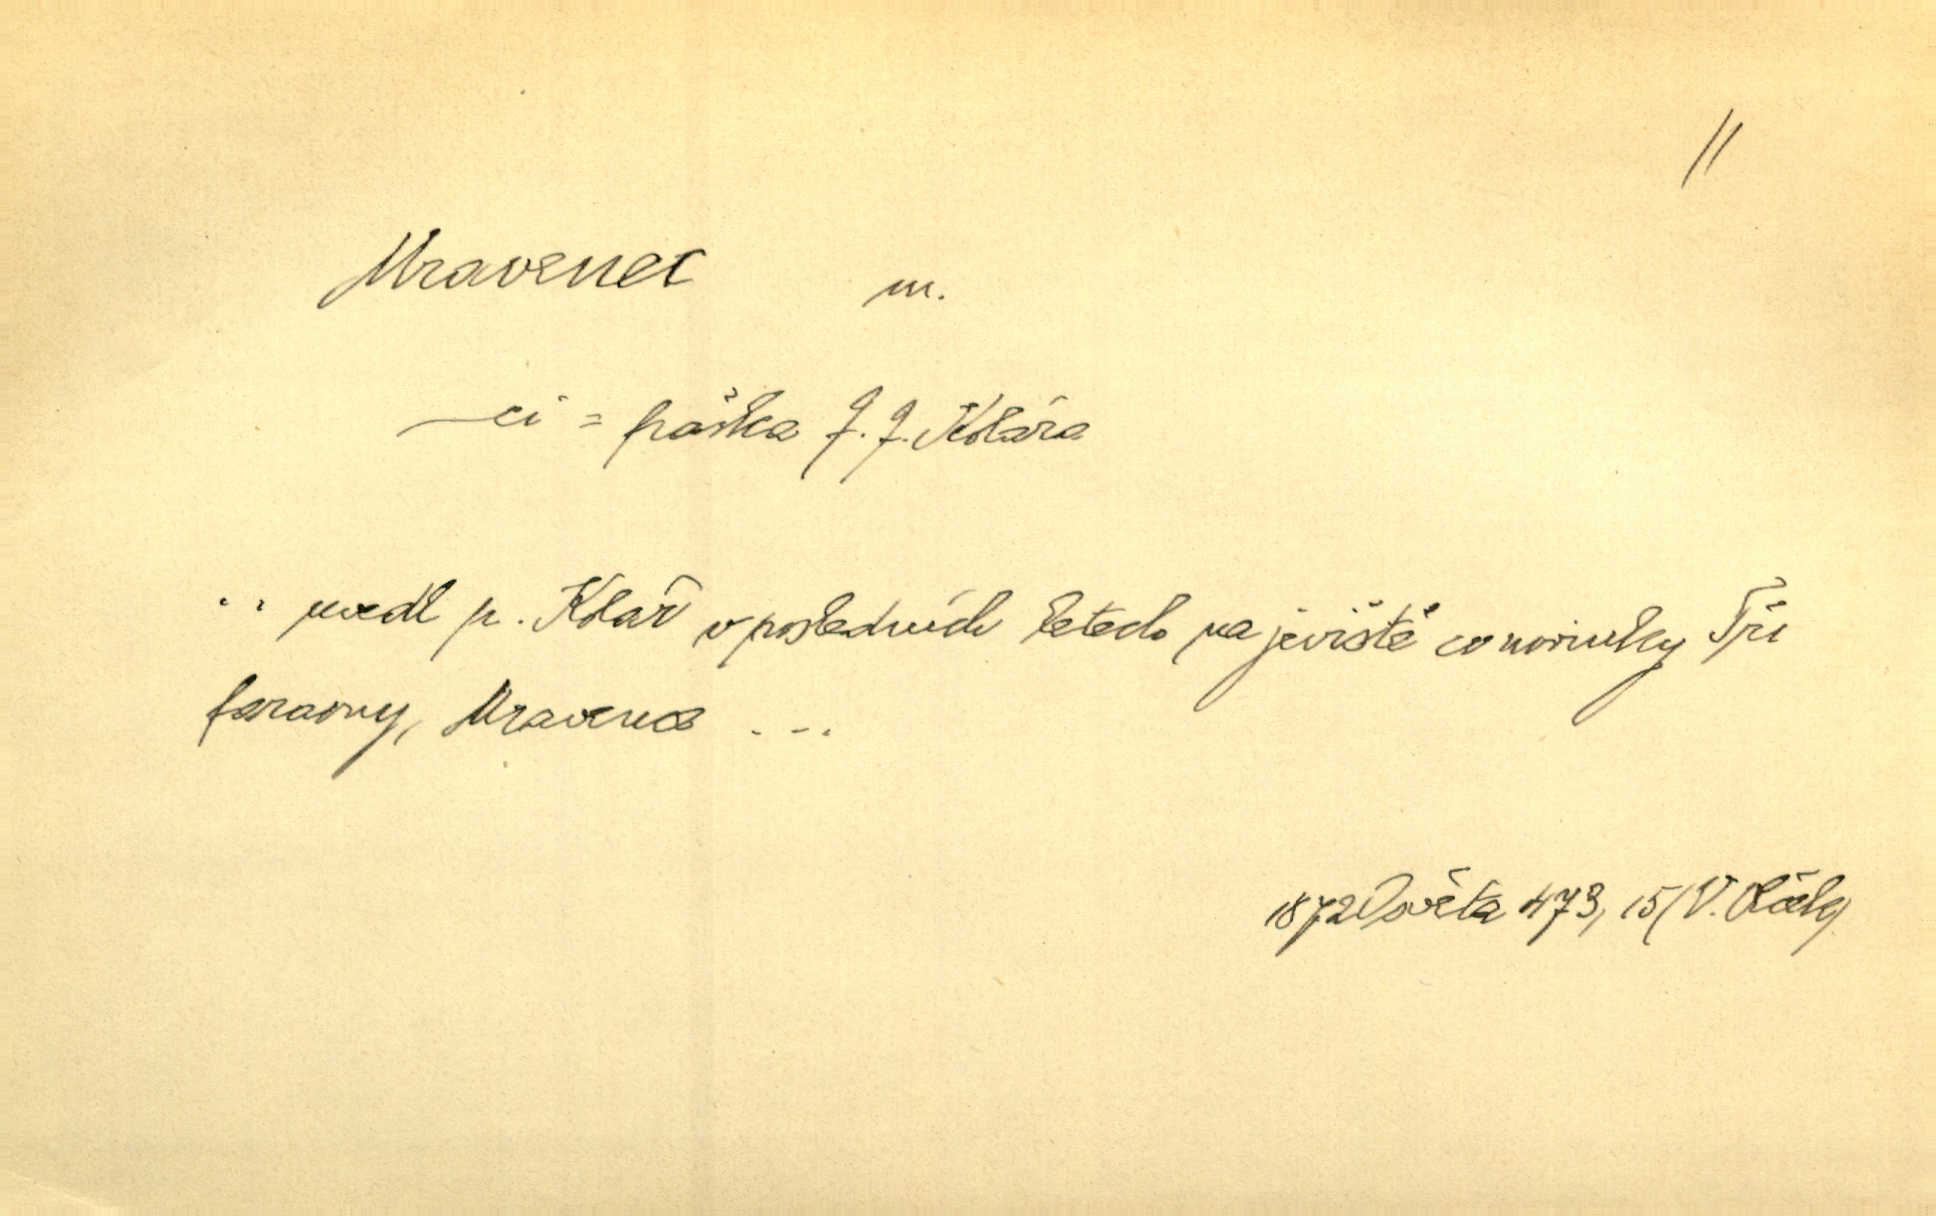 //
Mravenec m.
—ci = fraška J. J. Kolára
.. uvedl p. Kolár v posledních letech na jeviště co novinky Tři
faraony, Mravence ...
1872 Osvěta 473, 15/V. Vlček/